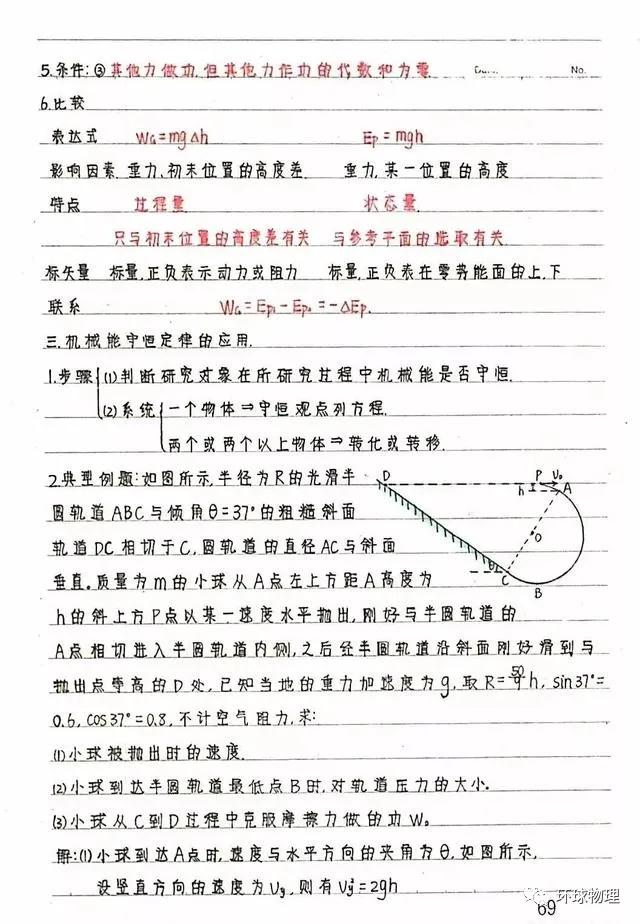 5.条件:③其他力做功,但其他力作功的代数和为零. No.
6.比较
表达式 WG=mgΔh Ep=mgh
影响因素 重力、初末位置的高度差. 重力,某一位置的高度
特点 过程量 状态量
只与初末位置的高度差有关 与参考平面的选取有关
标矢量 标量,正负表示动力或阻力 标量,正负表在零势能面的上、下
联系 WG=Ep₁-Ep₂=-ΔEp.
三.机械能守恒定律的应用.
1.步骤 (1)判断研究对象在所研究过程中机械能是否守恒.
(2)系统 一个物体⇒守恒观点列方程.
两个或两个以上物体⇒转化或转移.
2.典型例题:如图所示,半径为R的光滑半
圆轨道ABC与倾角θ=37°的粗糙斜面
轨道DC相切于C,圆轨道的直径AC与斜面
垂直。质量为m的小球从A点左上方距A高度为
h的斜上方P点以某一速度水平抛出,刚好与半圆轨道的
A点相切进入半圆轨道内侧,之后经半圆轨道沿斜面刚好滑到与
抛出点等高的D处,已知当地的重力加速度为g,取R=50/9h,sin37°=
0.6,cos37°=0.8,不计空气阻力,求:
(1)小球被抛出时的速度.
(2)小球到达半圆轨道最低点B时,对轨道压力的大小.
(3)小球从C到D过程中克服摩擦力做的功W。
解:(1)小球到达A点时,速度与水平方向的夹角为θ,如图所示,
设竖直方向的速度为υy,则有υy²=2gh
D P υ₀
h A
O
θ C
B
环球物理
69